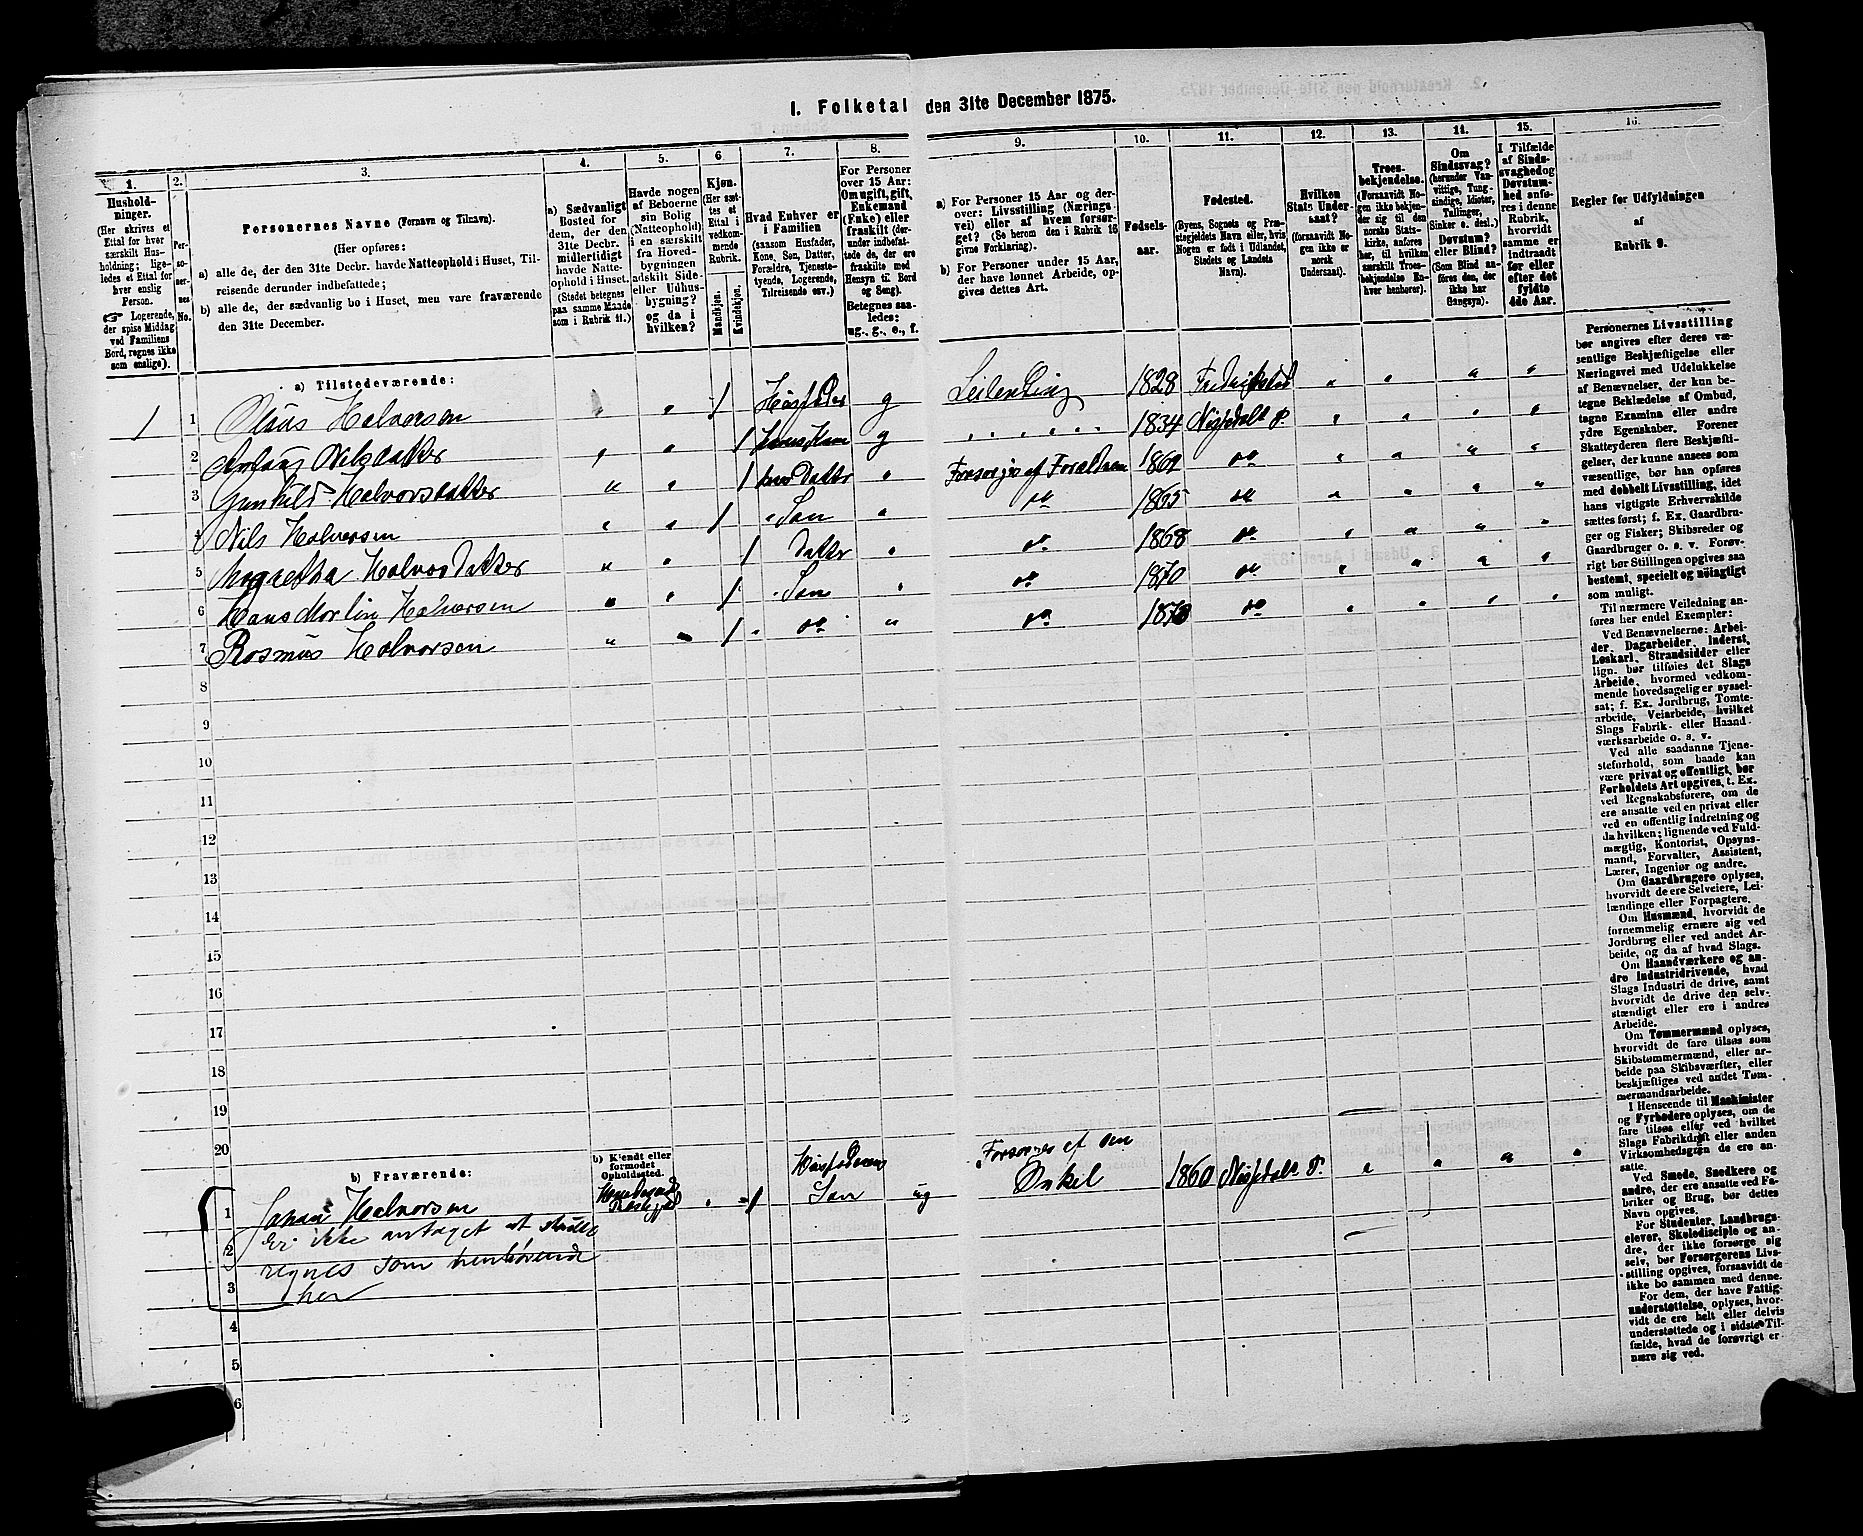 I. Folketal den 31te December 1875.
1.
Hushold-
ninger.
(Her skrives et
Ettal for hver
særskilt Hus-
holdning; lige-
ledes et Ettal for
hver enslig
Person.
☞ Logerende,
der spise Middag
ved Familiens
Bord, regnes ikke
som enslige).
2.
Per-
so-
ner-
nes
No.
3.
Personernes Navne (Fornavn og Tilnavn).
(Her opføres:
a) alle de, der den 31te Decbr. havde Natteophold i Huset, Til-
reisende derunder indbefattede;
b) alle de, der sædvanlig bo i Huset, men vare fraværende
den 31te December.
4.
a) Sædvanligt
Bosted for
dem, der den
31te Decbr.
midlertidigt
havde Natte-
ophold i Huset.
(Stedet betegnes
paa samme Maade
som i Rubrik 11.)
5.
Havde nogen
af Beboerne
sin Bolig
(Natteophold)
i en særskilt
fra Hoved-
bygningen
adskilt Side-
eller Udhus-
bygning?
og da i
hvilken?
6.
Kjøn.
(Her sæt-
tes et
Ettal i
vedkom-
mende
Rubrik.
Mandkjøn.
Kvindekjøn.
7.
Hvad Enhver er
i Familien
(saasom Husfader,
Kone, Søn, Datter,
Forældre, Tjeneste-
tyende, Logerende,
Tilreisende osv.)
8.
For Personer
over 15 Aar:
Om ugift, gift,
Enkemand
(Enke) eller
fraskilt (der-
under indbefat-
tede de, der ere
fraskilte med
Hensyn til Bord
og Seng).
Betegnes saa-
ledes:
ug., g., e., f.
9.
a) For Personer 15 Aar og der-
over: Livsstilling (Nærings-
vei) eller af hvem forsør-
get? (Se herom den i Rubrik 16
givne Forklaring).
b) For Personer under 15 Aar,
der have lønnet Arbeide, op-
gives dettes Art.
10.
Fødsels-
aar.
11.
Fødested.
(Byens, Sognets og Præ-
stegjeldets Navn eller, hvis
Nogen er født i Udlandet,
Stedets og Landets
Navn).
12.
Hvilken
Stats Under-
saat?
(forsaavidt No-
gen ikke er
norsk
Undersaat).
13.
Troes-
bekjendelse.
(Forsaavidt No-
gen ikke bekjen-
der sig til den
norske Stats-
kirke, anføres
her, til hvilken
særskilt Troes-
bekjendelse En-
hver henhører).
14.
Om
Sindssvag?
(herunder Van-
vittige, Tung-
sindige, Idioter,
Tullinger,
Sinker o. desl.)
Døvstum?
eller Blind?
(Som Blind an-
føres den, der
ikke har
Gangsyn).
15.
I Tilfælde
af Sinds-
svaghed og
Døvstum-
hed anfø-
res i denne
Rubrik,
hvorvidt
samme er
indtraadt
før eller
efter det
fyldte
4de Aar.
16.
Regler for Udfyldningen
af
Rubrik 9.
a) Tilstedeværende:
1 1 Halvorsen g Leilending 1828 Fredrikstad
2 Nilsdatter g 1834
3 Gunhild Halvorsdatter Datter Forsørges af Forældrene do
4 Nils Halvorsen Søn do 1865 do
5 Halvorsdatter Datter do 1868 do
6 Hans Halvorsen Søn do 1870 do
7 Rasmus Halvorsen do do do
8
9
10
11
12
13
14
15
16
17
18
19
20
b) Fraværende:
b) Kjendt eller
formodet
Opholdssted.
1 Johan Halvorsen Søn ug Forsørges af den Onkel 1860
2 Er ikke antaget at skulle
3 regnes som henhørende
her
4
5
6
Personernes Livsstilling
bør angives efter deres væ-
sentlige Beskjæftigelse eller
Næringsvei med Udelukkelse
af Benævnelser, der kun be-
tegne Beklædelse af Ombud,
tagne Examina eller andre
ydre Egenskaber. Forener
Skatteyderen flere Beskjæfti-
gelser, der kunne ansees som
væsentlige, bør han opføres
med dobbelt Livsstilling, idet
hans vigtigste Erhvervskilde
sættes først; f. Ex. Gaardbru-
ger og Fisker; Skibsreder og
Gaardbruger o. s. v. Forøv-
rigt bør Stillingen opgives saa
bestemt, specielt og nöiagtigt
som muligt.
Til nærmere Veiledning an-
føres her endel Exempler:
Ved Benævnelserne: Arbei-
der, Dagarbeider, Inderst,
Løskarl, Strandsidder eller
lign. bør tilføies det Slags
Arbeide, hvormed vedkom-
mende hovedsagelig er syssel-
sat; f. Ex. Jordbrug, Tomte-
arbeide, Veiarbeide, hvilket
Slags Fabrik- eller Haand-
værksarbeide o. s. v.
Ved alle saadanne Tjene-
steforhold, som baade kan
være privat og offentligt, bør
Forholdets Art opgives, f. Ex.
ved Regnskabsførere, om de
ere ansatte ved en privat eller
ved en offentlig Indretning og
da hvilken; lignende ved Fuld-
mægtig, Kontorist, Opsyns-
mand, Forvalter, Assistent,
Lærer, Ingeniør og andre.
Om Gaardbrugere oplyses,
hvorvidt de ere Selveiere, Lei-
lændinge eller Forpagtere.
Om Husmænd, hvorvidt de
fornemmelig ernære sig ved
Jordbrug eller ved andet Ar-
beide, og da af hvad Slags.
Om Haandværkere og an-
dre Industridrivende, hvad
Slags Industri de drive, samt
hvorvidt de drive den selv-
stændigt eller ere i andres
Arbeide.
Om Tømmermænd oplyses,
hvorvidt de fare tilsøs som
Skibstømmermænd, eller ar-
beide paa Skibsværfter, eller
beskjæftiges ved andet Tøm-
mermandsarbeide.
I Henseende til Maskinister
og Fyrbødere oplyses, om de
fare tilsøs eller ved hvilket
Slags Fabrikdrift eller anden
Virksomhedsgren de ere an-
satte.
Ved Smede, Snedkere og
andre, der ere ansatte ved Fa-
briker og Brug, bør dettes
Navn opgives.
For Studenter, Landbrugs-
elever, Skoledisciple og an-
dre, der ikke forsørge sig
selv, bør Forsørgerens Livs-
stilling opgives, forsaavidt de
ikke bo sammen med denne.
For dem, der have Fattig-
understøttelse, oplyses, hvor-
vidt de ere helt eller delvis
understøttede og i sidste Til-
fælde, hvad de forøvrigt er-
nære sig ved.